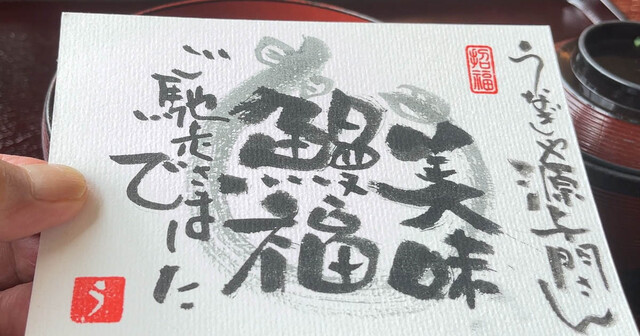 うなぎや源
門さん
招福
美味
鰻福
ご馳走さま
でした
う